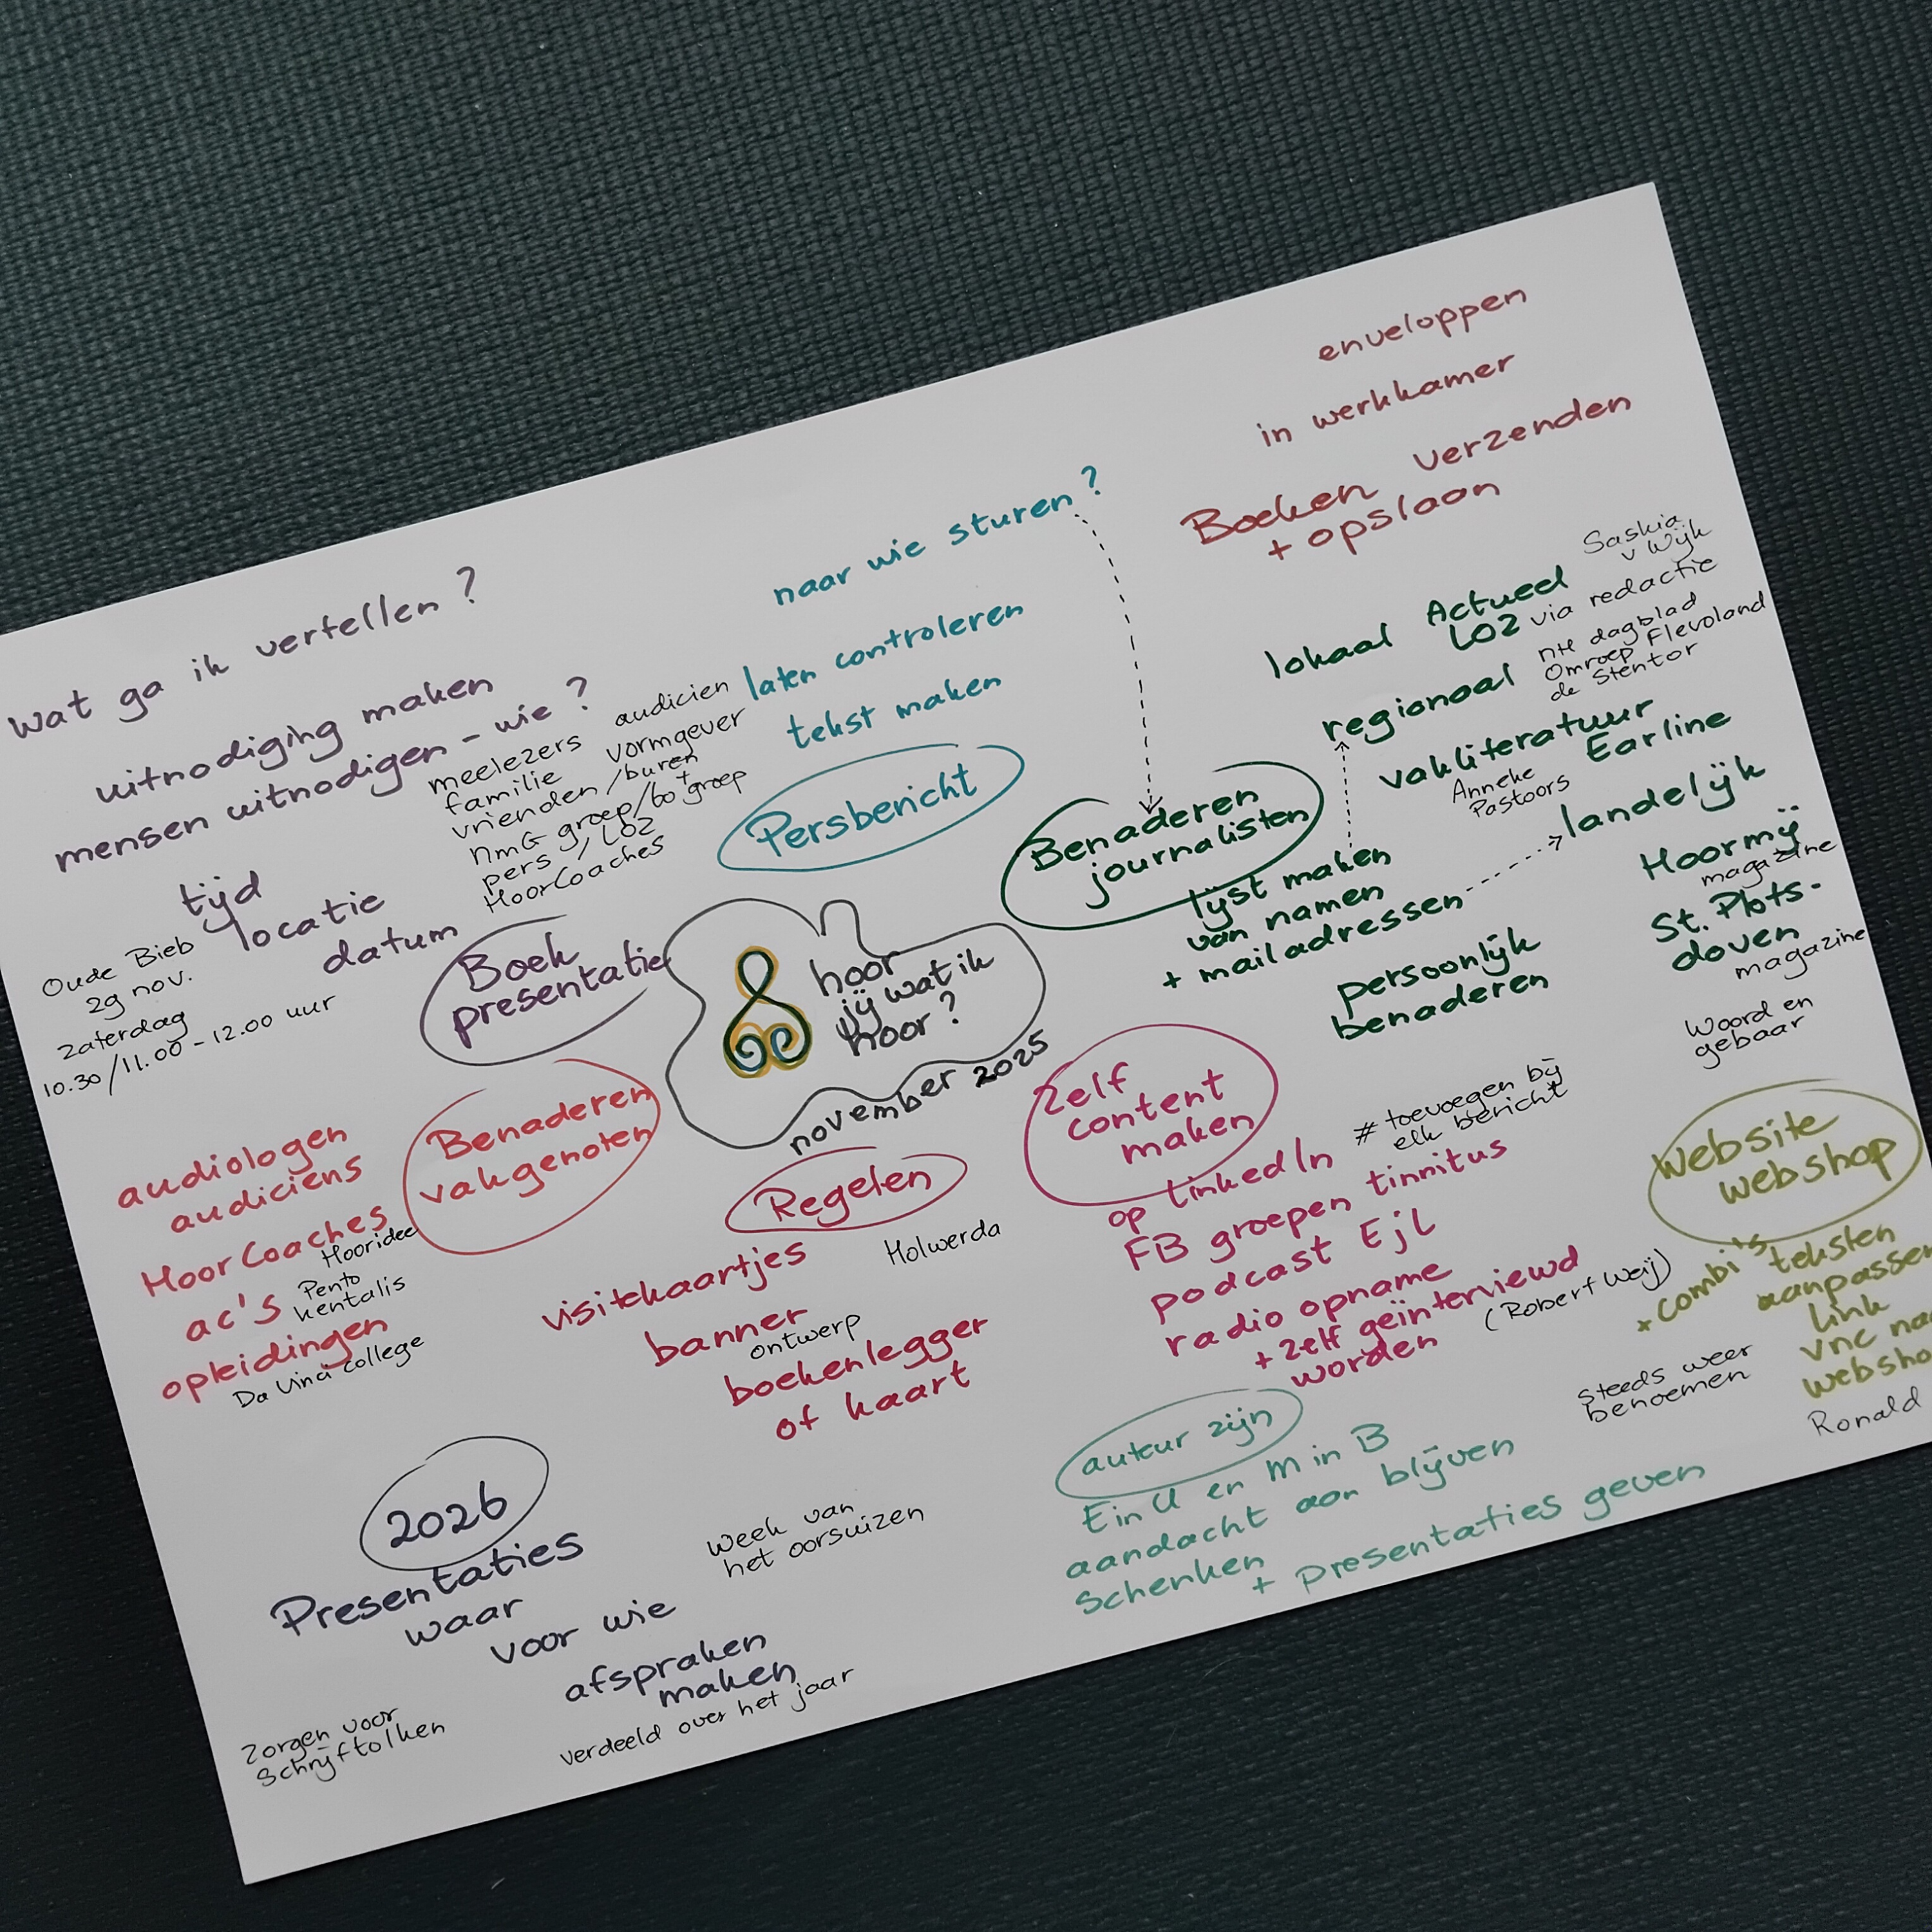 enveloppen
in werkkamer
Boeken verzenden
+ opslaan
naar wie sturen?
laten controleren
tekst maken
Persbericht
wat ga ik vertellen?
uitnodiging maken
mensen uitnodigen - wie?
meelezers audicien
familie vormgever
vrienden /buren
NMG groep/bo⁺groep
pers / LOZ
HoorCoaches
tijd
locatie
datum
Oude Bieb
29 nov.
zaterdag
10.30/11.00 - 12.00 uur
Boek
presentatie
hoor
jij wat ik
hoor?
november 2025
Benaderen
journalisten
lijst maken
van namen
+ mailadressen
persoonlijk
benaderen
lokaal Actueel
LOZ via redactie
Saskia
v Wijk
regionaal
NH dagblad
Omroep Flevoland
de Stentor
vakliteratuur
Earline
Anneke
Pastoors
landelijk
Hoormij
magazine
St. Plots-
doven
magazine
Woord en
gebaar
Benaderen
vakgenoten
audiologen
audiciens
HoorCoaches
Hooridee
ac's
Pento
kentalis
opleidingen
Da Vinci College
Regelen
visitekaartjes
Holwerda
banner
ontwerp
boekenlegger
of kaart
Zelf
content
maken
op LinkedIn
# toevoegen bij
elk bericht
FB groepen tinnitus
podcast EjL
radio opname
+ zelf geïnterviewd
worden
(Robert Weij)
website
webshop
+ combi's
teksten
aanpassen
link
vnc
Ronald
steeds weer
benoemen
auteur zijn
EinU en MinB
aandacht aan blijven
schenken
+ presentaties geven
2026
Presentaties
waar
voor wie
afspraken
maken
verdeeld over het jaar
week van
het oorsuizen
Zorgen voor
Schrijftolken